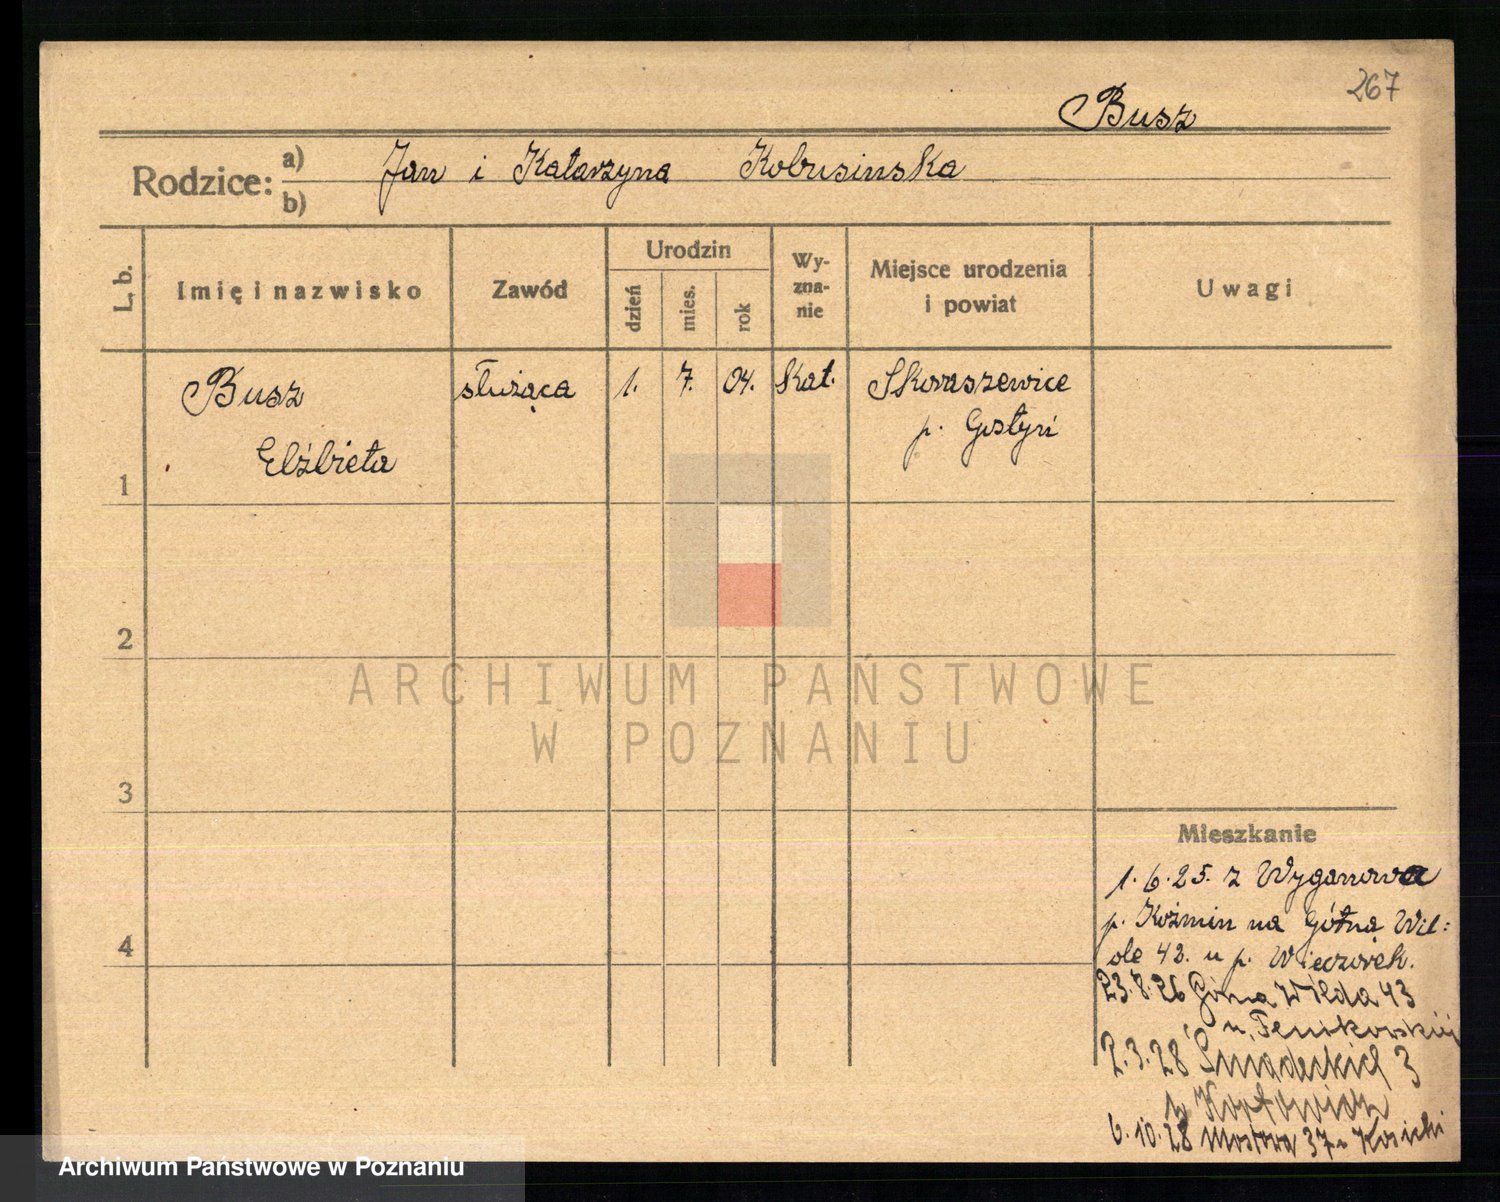 267
Busz
Rodzice: a) Jan i Katarzyna Kobusinska
b)
L. b.
Imię i nazwisko
Zawód
Urodzin
dzień
mies.
rok
Wy-
zna-
nie
Miejsce urodzenia
i powiat
Uwagi
Busz służąca 1. 7. 04. Kat. Skoraszewice
p. Gostyń
Elżbieta
1
2
ARCHIWUM PAŃSTWOWE
W POZNANIU
3
Mieszkanie
1.6.25. z Wyganowa
p. Koźmin na Górną Wil=
de 42. u p. Wieczorek.
4
23.8.26 Górna Wilda 43
u
2.3.28 Śniadeckich 3
6.10.28 Mostowa 37
Archiwum Państwowe w Poznaniu